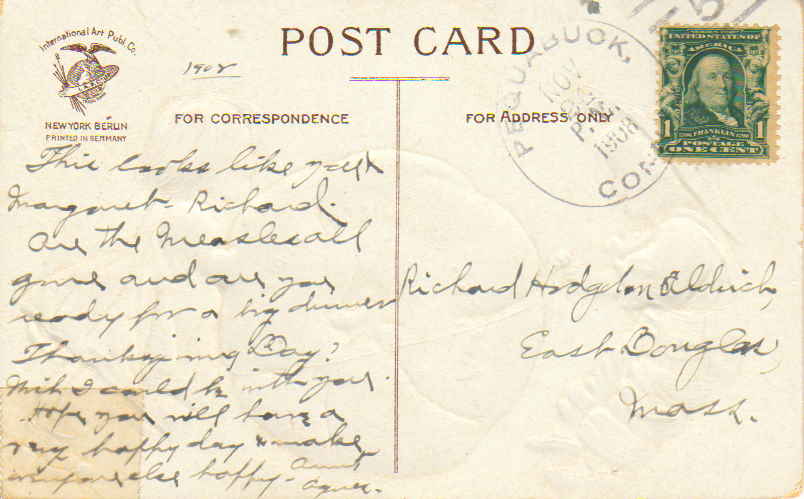 International Art Publ. Co.
NEW YORK BERLIN
PRINTED IN GERMANY
POST CARD
1908
FOR CORRESPONDENCE
FOR ADDRESS ONLY
PEQUABUCK,
NOV
P.M.
1908
CONN
UNITED STATES OF
AMERICA
1 FRANKLIN 1
POSTAGE
ONE CENT
This looks like you &
Margaret Richard.
Are the Measles all
gone and are you
ready for a big dinner
Thanksgiving Day?
Wish I could be with you.
Hope you will have a
very happy day & make
everyone else happy. Aunt
Agnes.
Richard Hodgdon Aldrich,
East Douglas,
Mass.